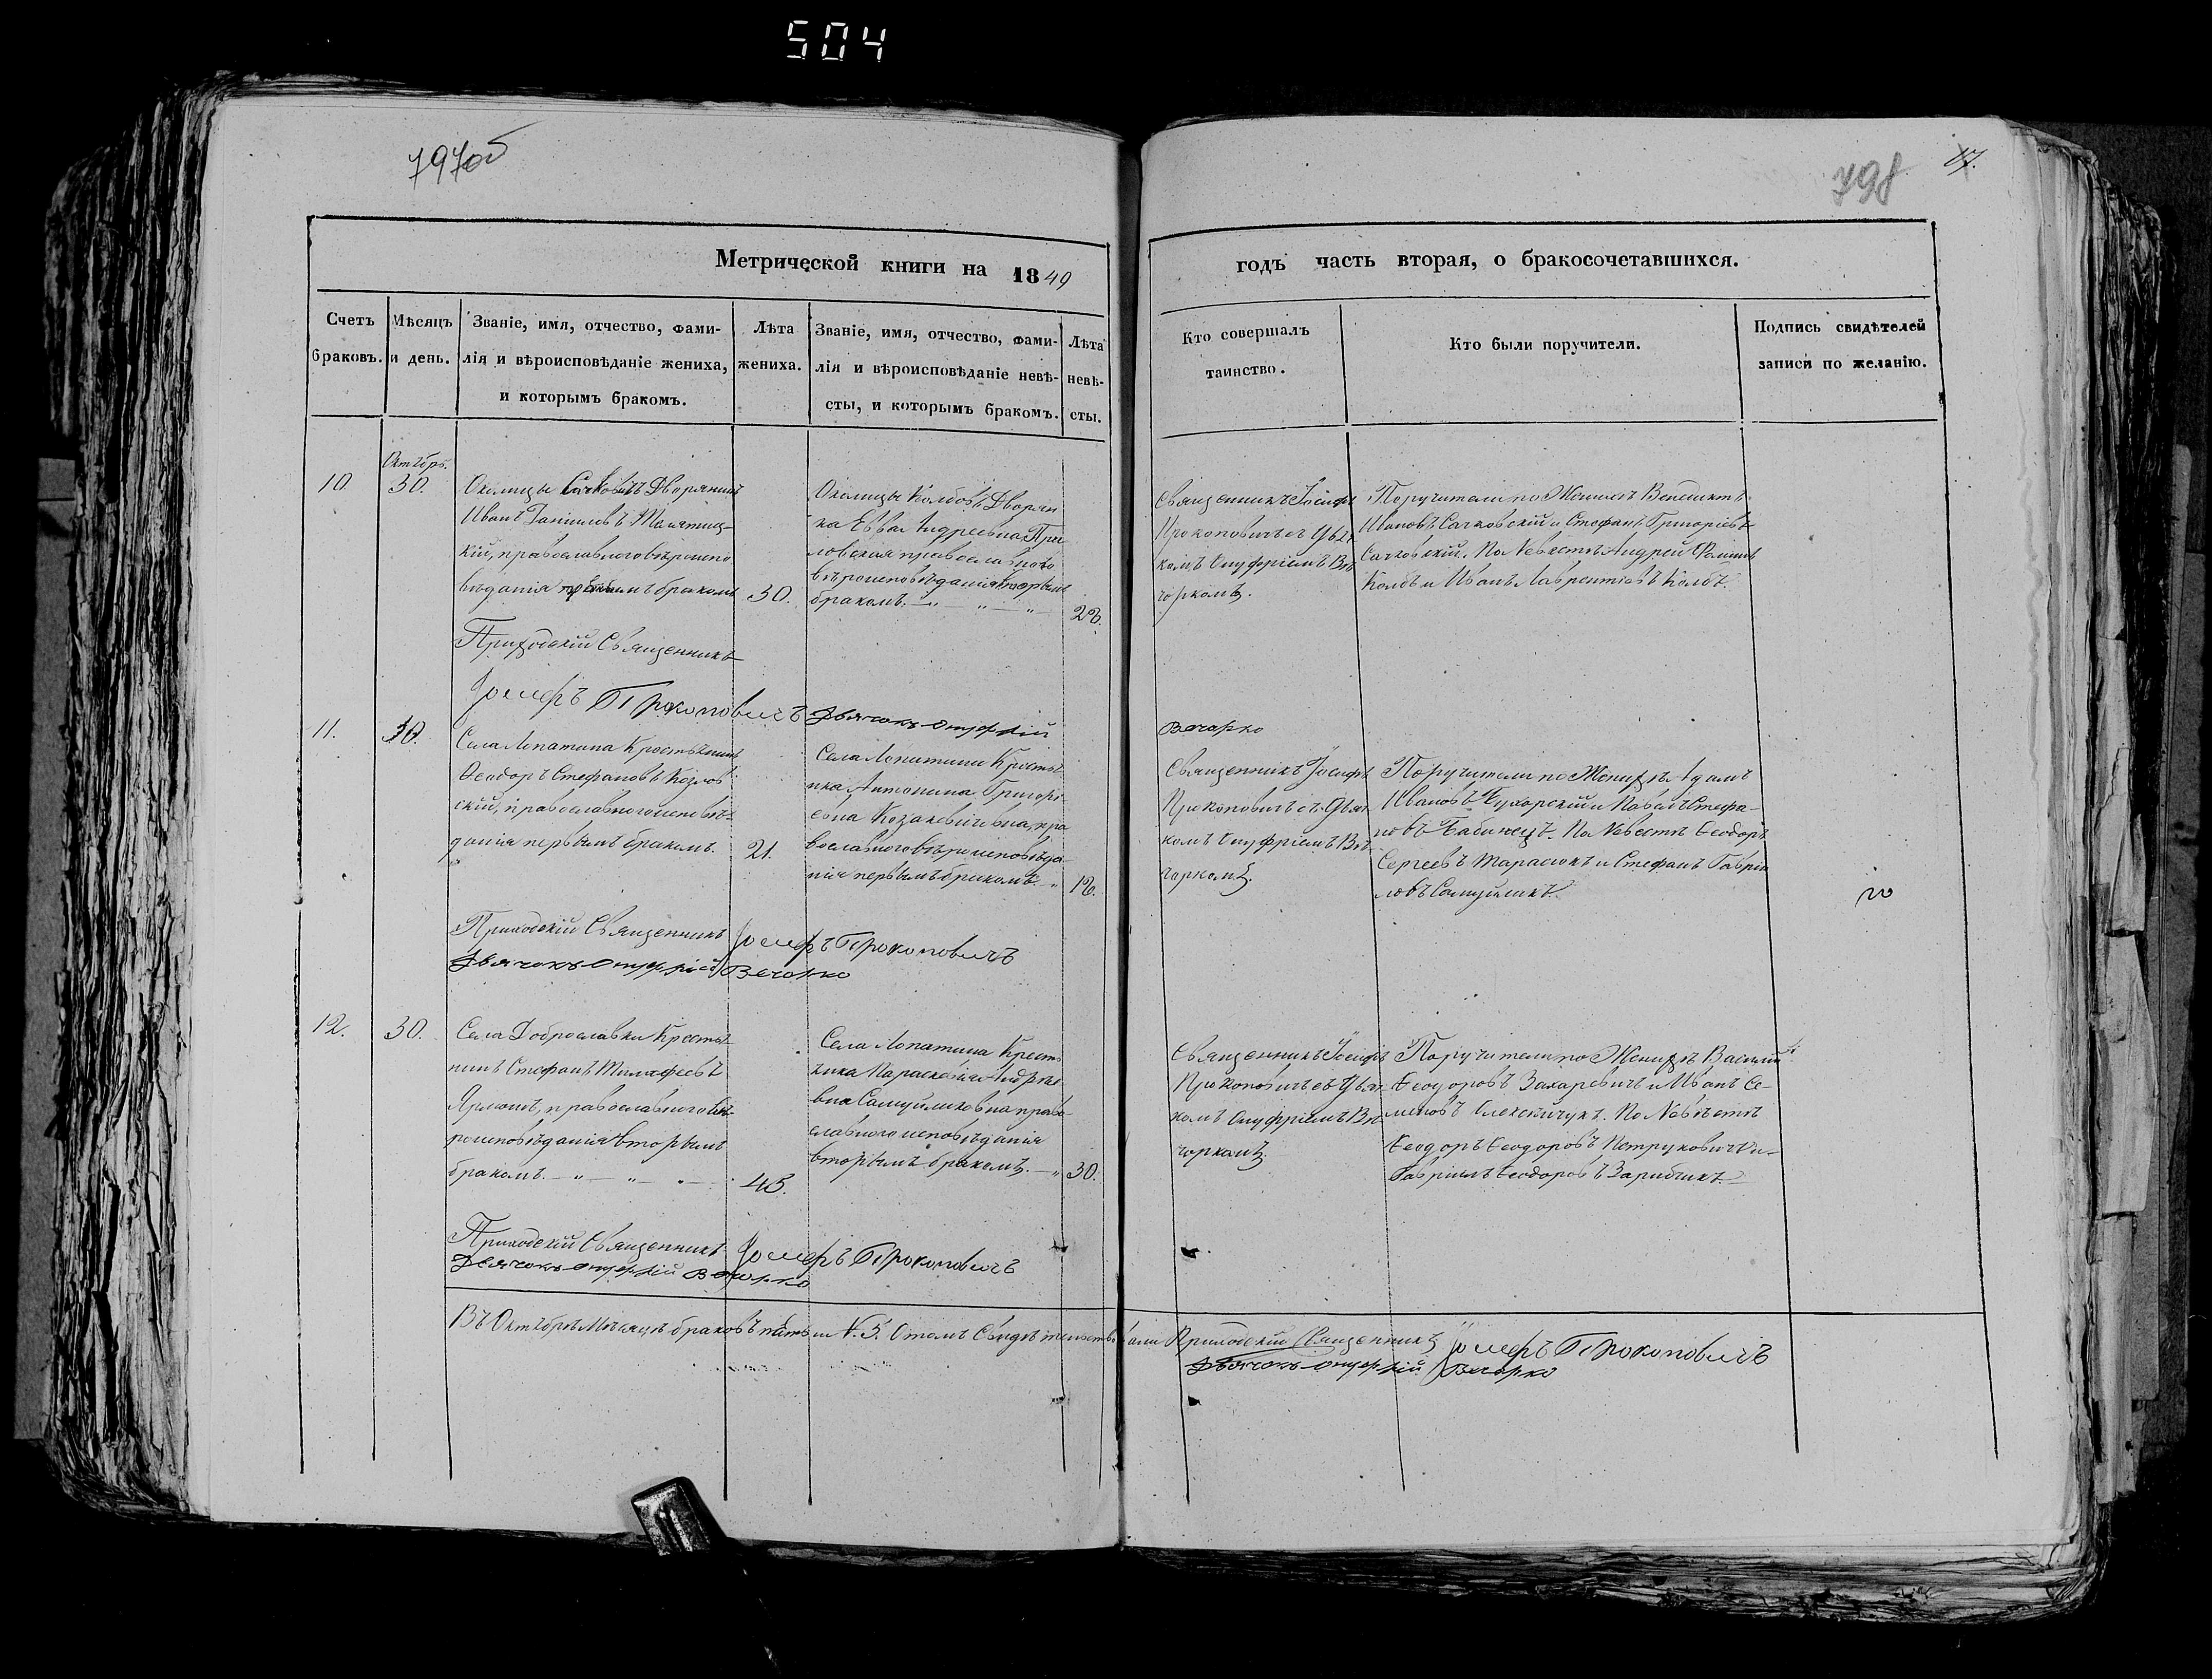 504
797об
798
17.
Метрической книги на 1849
годъ часть вторая, о бракосочетавшихся.
Счетъ браковъ.
Мѣсяцъ и день.
Званіе, имя, отчество, фами-
лія и вѣроисповѣданіе жениха,
и которымъ бракомъ.
Лѣта
жениха.
Званіе, имя, отчество, фами-
лія и вѣроисповѣданіе невѣ-
сты, и которымъ бракомъ.
Лѣта
невѣ-
сты.
Кто совершалъ
таинство.
Кто были поручители.
Подпись свидѣтелей
записи по желанію.
Октябрь.
10
30.
Околицы Дворянинъ
Иванъ Даніиловъ
кій, православного вѣроиспо
вѣданія бракомъ
30.
Околицы Колбовъ Дворян
ка Евва Андреевна
ловская православного
вѣроисповѣданія вторымъ
бракомъ. — „ — „ — „
Священникъ Іосифъ
Прокоповичъ съ Дьяч
комъ Онуфріемъ Вѣ
чоркомъ.
Поручители по Женихѣ Венедиктъ
Ивановъ Сачковскій и Стефанъ Григоріевъ
Сачковскій. По Невѣстѣ Андрей
Колбъ и Иванъ Лаврентіевъ Колбъ.
Приходскій Священникъ
Іосифъ Прокоповичъ
Дьячокъ Онуфрій
Вечорко
11.
30.
Села Лопатина Крестьянинъ
Ѳеодоръ Стефановъ Козлов
скій, православного исповѣ-
данія первымъ бракомъ.
21.
Села Лопатина Крестья
нка Антонина Григорі
евна Козакевичевна, пра
вославного вѣроисповѣда
нія первымъ бракомъ. „
Священникъ Іосифъ
Прокоповичъ съ Дьяч
комъ Онуфріемъ Вѣ
чоркомъ.
Поручители по Женихѣ Адамъ
Ивановъ и Павелъ Стефа-
новъ Бабинецъ. По Невѣстѣ Ѳеодоръ
Сергеевъ Тарасюкъ и Стефанъ Гавріи
ловъ Самуйликъ.
Приходскій Священникъ Іосифъ Прокоповичъ
Дьячокъ Онуфрій Вечорко
12.
30.
Села Доброславки Крестья
нинъ Стефанъ Тимофеевъ
православного вѣ
роисповѣданія вторымъ
бракомъ. — „ — „ — „ —
45.
Села Лопатина Кресть
янка Параскевія Андрее
вна Самуйликовна право
славного исповѣданія
вторымъ бракомъ. — „
30.
Священникъ Іосифъ
Прокоповичъ съ Дьяч
комъ Онуфріемъ Вѣ
чоркомъ.
Поручители по Женихѣ Василій
Ѳеодоровъ Захаревичъ и Иванъ Се-
меновъ Алексійчукъ. По Невѣстѣ
Ѳеодоръ Ѳеодоровъ Петруковичъ и
Гавріилъ Ѳеодоровъ Зарибчикъ.
Приходскій Священникъ Іосифъ Прокоповичъ
Дьячокъ Онуфрій Вечорко
Въ Октябрѣ Мѣсяцѣ браковъ пять №. 5. О томъ Свидѣтельствовали Приходскій Священникъ Іосифъ Прокоповичъ
Дьячокъ Онуфрій Вечорко